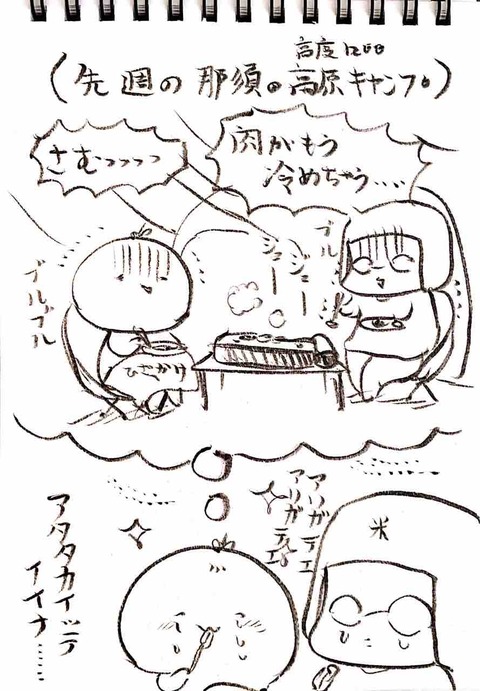 高度1200
(先週の那須の高原キャンプ)
さむっっっっ
肉がもう
冷めちゃう....
ブルブル
ブル
ジュー
ジュー
ひざかけ
アリガテエ
アリガテエ
米
アタタカイッテ
イイナ......